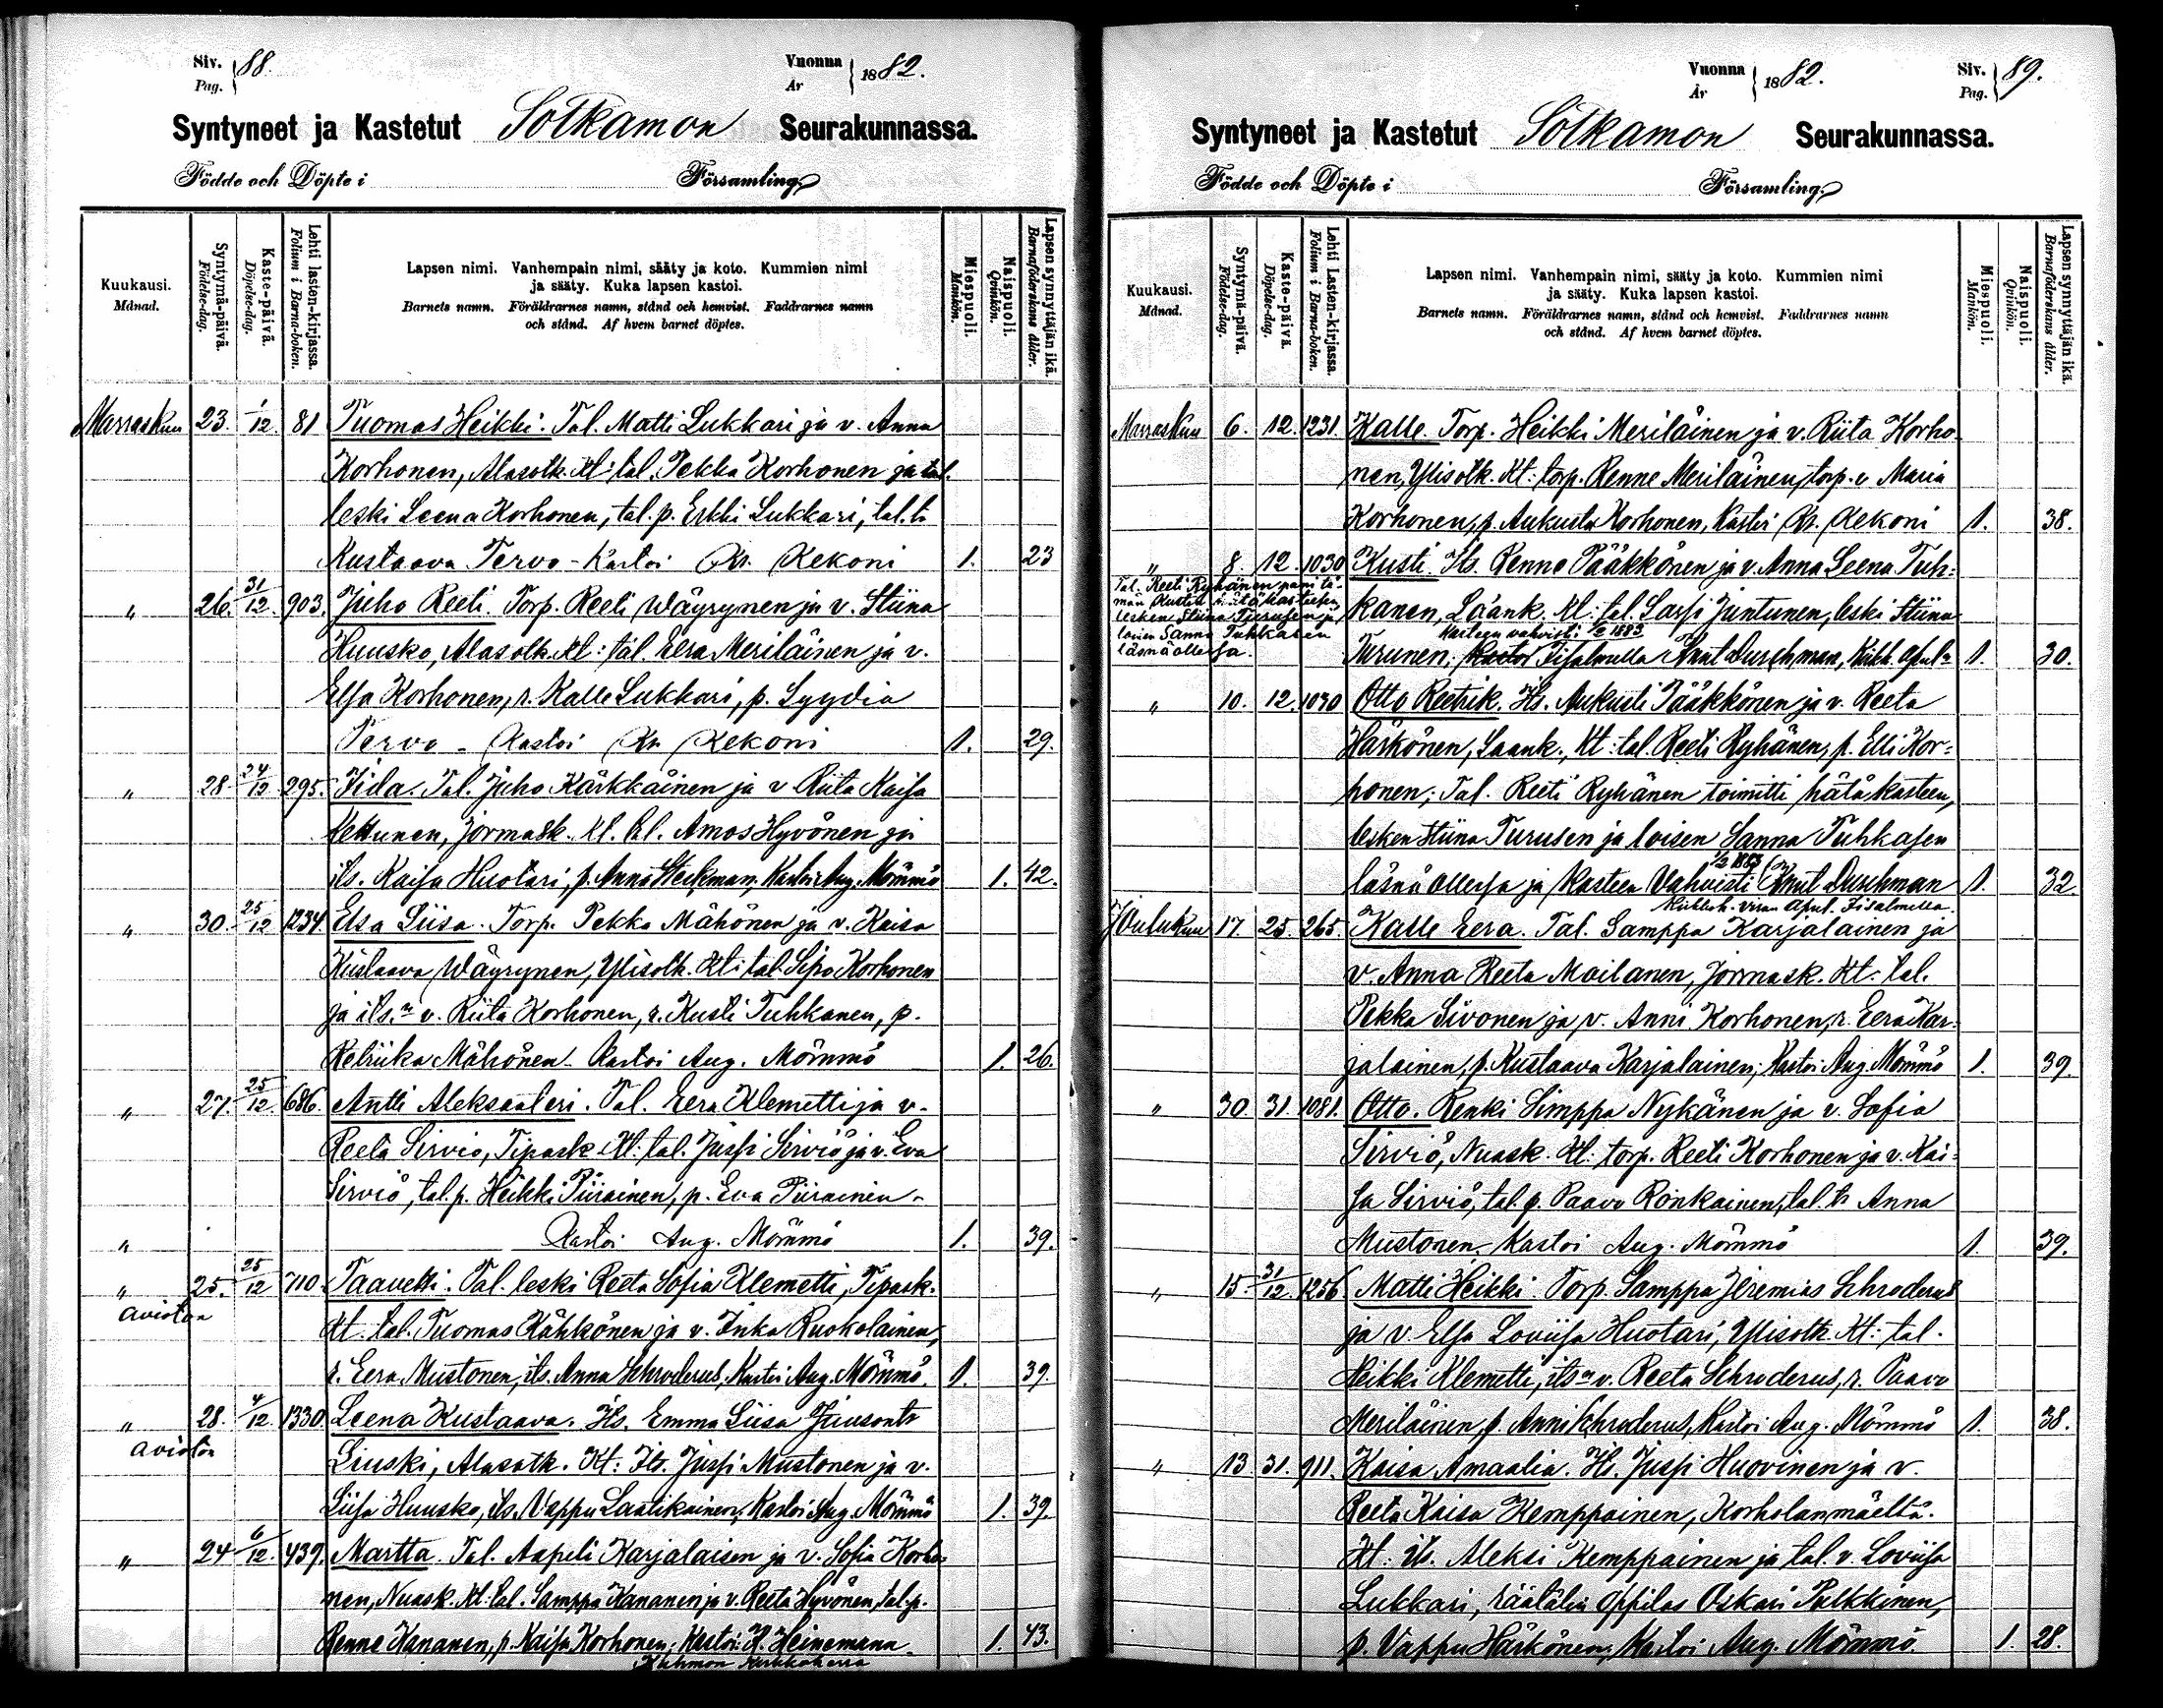 Siv. 88.
Pag.
Vuonna 1882.
År
Syntyneet ja Kastetut Sotkamon Seurakunnassa.
Födde och Döpte i Församling.
Kuukausi.
Månad.
Syntymä-päivä.
Födelse-dag.
Kaste-päivä.
Döpelse-dag.
Lehti lasten-kirjassa.
Folium i Barna-boken.
Lapsen nimi. Vanhempain nimi, sääty ja koto. Kummien nimi
ja sääty. Kuka lapsen kastoi.
Barnets namn. Föräldrarnes namn, stånd och hemvist. Faddrarnes namn
och stånd. Af hvem barnet döptes.
Miespuoli.
Mankön.
Naispuoli.
Qvinkön.
Lapsen synnyttäjän ikä.
Barnaföderskans ålder.
Marraskuu 23. 1/12 81 Tuomas Heikki. Tal. Matti Lukkari ja v. Anna
Korhonen, Alasotk. Kt: tal. Pekka Korhonen ja tal.
leski Leena Korhonen, tal. p. Erkki Lukkari, tal. t.
Kustaava Tervo - Kastoi Kr. Rekoni 1. 23
" 26. 31/12 903. Juho Reeti. Torp. Reeti Wäyrynen ja v. Stiina
Huusko, Alasotk. Kt: tal. Eera Meriläinen ja v.
Elsa Korhonen, r. Kalle Lukkari, p. Lyydia
Tervo - Kastoi Kr. Rekoni 1. 29.
" 28. 24/12 295. Iida. Tal. Juho Kärkkäinen ja v Riita Kaisa
Kettunen, Jormask. Kt. tal. Amos Hyvönen ja
its. Kaisa Huotari, p. Anna Heikman, Kastoi Aug. Mömmö 1. 42.
" 30. 25/12 1234. Elsa Liisa. Torp. Pekka Mähönen ja v. Kaisa
Kustaava Wäyrynen, Ylisotk. Kt: tal. Sipo Korhonen
ja its.n v. Riita Korhonen, r. Kusti Tuhkanen, p.
Retriika Mähönen. Kastoi Aug. Mömmö 1. 26.
" 27. 25/12. 686. Antti Aleksanteri. Tal. Eera Klemetti ja v.
Reeta Sirvio, Tipask. Kt: tal. Jussi Sirviö ja v. Eva
Sirviö, tal. p. Heikki Piirainen, p. Eva Piirainen.
" Kastoi Aug. Mömmö 1. 39.
" 25. 25/12 710. Taavetti. Tal. leski Reeta Sofia Klemetti, Tipask.
Aviotoin
Kt. tal. Tuomas Kähkönen ja v. Inka Ruokolainen,
r. Eera Mustonen, its. Anna Schroderus, Kastoi Aug. Mömmö. 1. 39.
" 28. 4/12. 1330. Leena Kustaava. Its. Emma Liisa Juusont.
Aviotoin
Liuski, Alasotk. Kt: Its. Jussi Mustonen ja v.
Liisa Huusko, its. Vappu Laatikainen, Kastoi Aug. Mömmö 1. 39.
" 24 6/12. 439. Martta. Tal. Aapeli Karjalaisen ja v. Sofia Korho-
nen, Nuask. Kt: tal. Samppa Kananen ja v. Reeta Hyvönen, tal. p.
Renne Kananen, p. Kaisa Korhonen; Kastoi: H. Heinemann 1. 43.
Kuhmon Kirkkoherra
Vuonna 1882.
År
Siv. 89.
Pag.
Syntyneet ja Kastetut Sotkamon Seurakunnassa.
Födde och Döpte i Församling.
Kuukausi.
Månad.
Syntymä-päivä.
Födelse-dag.
Kaste-päivä.
Döpelse-dag.
Lehti Lasten-kirjassa.
Folium i Barna-boken.
Lapsen nimi. Vanhempain nimi, sääty ja koto. Kummien nimi
ja sääty. Kuka lapsen kastoi.
Barnets namn. Föräldrarnes namn, stånd och hemvist. Faddrarnes namn
och stånd. Af hvem barnet döptes.
Miespuoli.
Mankön.
Naispuoli.
Qvinkön.
Lapsen synnyttäjän ikä.
Barnaföderskans ålder.
Marraskuu 6. 12. 1231. Kalle. Torp. Heikki Meriläinen ja v. Riita Korho-
nen, Ylisotk. Kt: torp. Renne Meriläinen, torp. v. Maria
Korhonen, p. Aukusta Korhonen, Kastoi Kr. Rekoni 1. 38.
" 8. 12. 1030 Kusti. Its. Renne Pääkkönen ja v. Anna Leena Tuh-
Tal. Reeti Ryhänen pani tä-
män Kustin hätäkasteesen,
lesken Stiina Turusen ja
loisen Sanna Tuhkasen
läsnä ollessa.
kanen, Laank. Kt: tal. Sassi Juntunen, leski Stiina
Kasteen vahvisti 1/2 1883
Turunen. Kastoi Iisalmella Knut Durchman, Kirkh. apul. 1. 30.
" 10. 12. 1030 Otto Reetrik. Its. Aukusti Pääkkönen ja v. Reeta
Härkönen, Laank. Kt: tal. Reeti Ryhänen, p. Elli Kor-
honen; Tal. Reeti Ryhänen toimitti hätäkasteen,
lesken Stiina Turusen ja loisen Sanna Tuhkasen
läsnä ollessa ja Kasteen Vahvisti 1/2 1883 Knut Durchman 1. 32
Kirkkoh. viran Apul. Iisalmella.
Joulukuu 17. 25. 265. Kalle Eera. Tal. Samppa Karjalainen ja
v. Anna Reeta Moilanen, Jormask. Kt: tal.
Pekka Sivonen ja v. Anni Korhonen, r. Eera Kar-
jalainen, p. Kustaava Karjalainen; Kastoi Aug. Mömmö 1. 39.
" 30. 31. 1081. Otto. Renki Simppa Nykänen ja v. Sofia
Sirviö, Nuask. Kt: torp. Reeti Korhonen ja v. Kai-
sa Sirviö, tal. p. Paavo Rönkainen, tal. tr Anna
Mustonen. Kastoi Aug. Mömmö 1. 39.
" 15. 31/12. 1256. Matti Heikki. Torp. Samppa Jeremias Schroderus
ja v. Elsa Loviisa Huotari, Ylisotk. Kt: tal.
Heikki Klemetti, its.n v. Reeta Schroderus, r. Paavo
Meriläinen, p. Anni Schroderus, Kastoi Aug. Mömmö 1. 38.
" 13. 31. 911. Kaisa Amaalia. Its. Jussi Huovinen ja v.
Reeta Kaisa Kemppainen, Korholanmäeltä.
Kt: its. Aleksi Kemppainen ja tal. v. Loviisa
Lukkari, räätälin oppilas Oskari Pulkkinen,
p. Vappu Härkönen; Kastoi Aug. Mömmö. 1. 28.